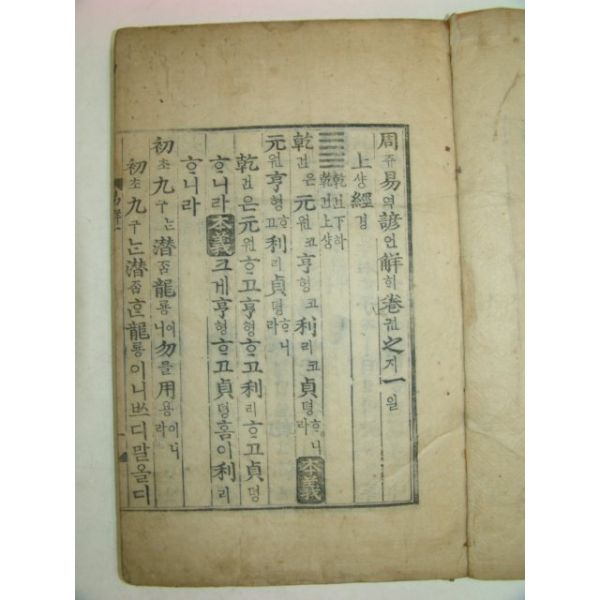 周쥬易역諺언解ᄒᆡ卷권之지一일
上샹經경
䷀ 乾건下하 乾건上샹
乾건은元원코亨형코利리코貞뎡ᄒᆞ니라 本義
元원亨형ᄒᆞ고利리貞뎡ᄒᆞ니라
乾건은元원ᄒᆞ고亨형ᄒᆞ고利리ᄒᆞ고貞뎡
ᄒᆞ니라 本義 크게亨형ᄒᆞ고貞뎡홈이利리
ᄒᆞ니라
初초九구ᄂᆞᆫ潛ᄌᆞᆷ龍룡이니勿믈用용이니라
初초九구ᄂᆞᆫ潛ᄌᆞᆷᄒᆞᆫ龍룡이니ᄡᅳ디말올디